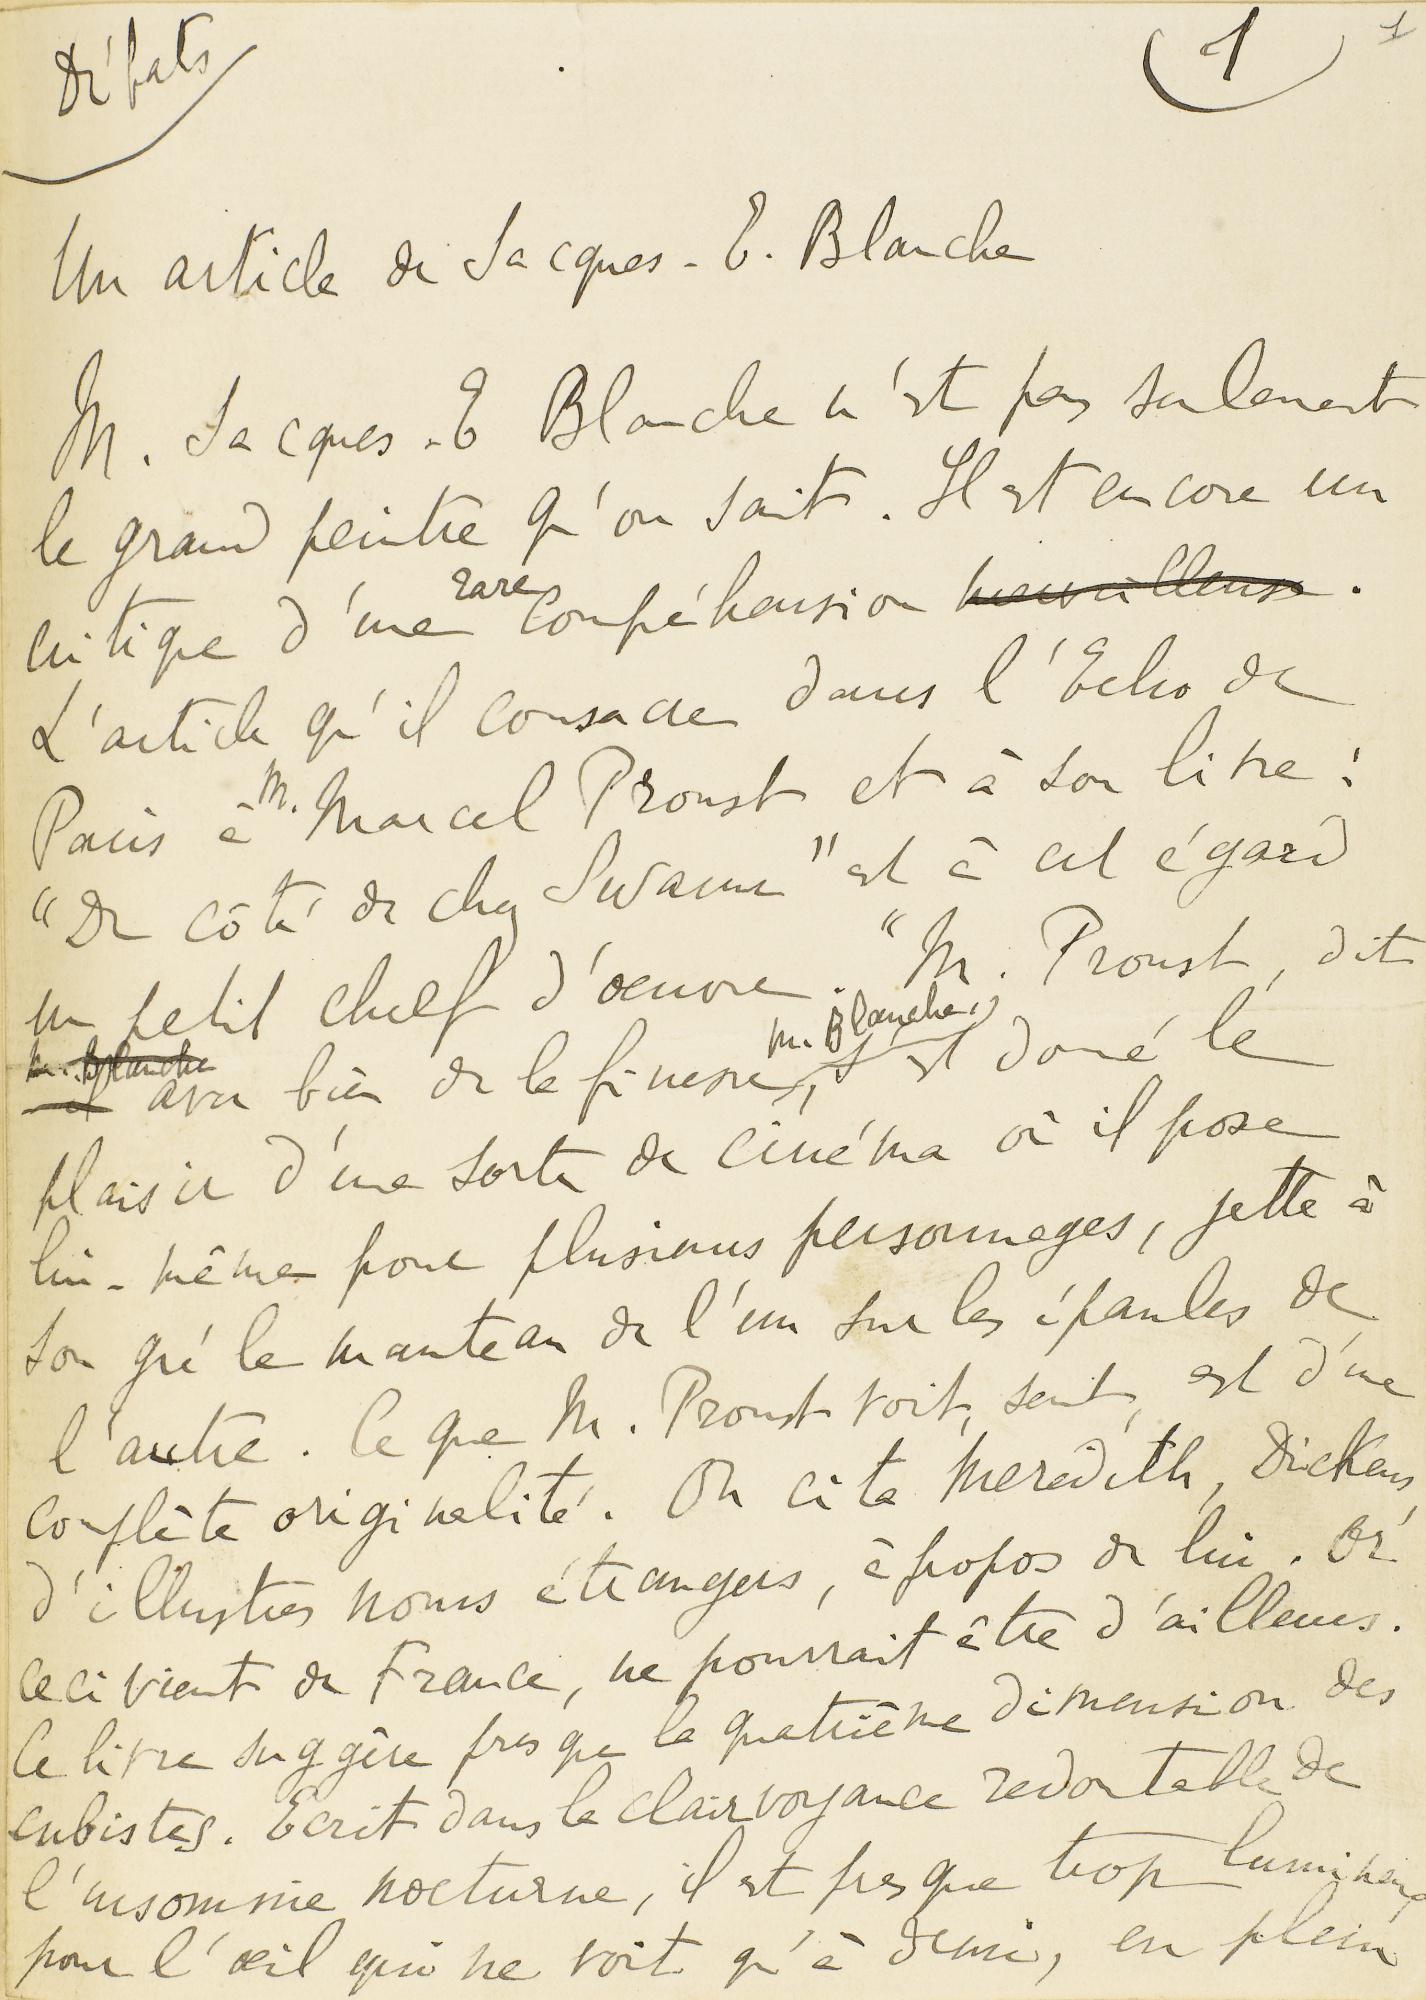 Débats
(1)
1
Un article de Jacques-E. Blanche
M. Jacques-E Blanche n'est pas seulement
le grand peintre qu'on sait. Il est encore un
critique d'une rare compréhension merveilleuse.
L'article qu'il consacre dans l'Echo de
Paris à M. Marcel Proust et à son livre :
"Du côté de chez Swann" est à cet égard
un petit chef d'oeuvre. "M. Proust, dit
M. Blanche il avec bien de la finesse, M. Blanche, s'est donné le
plaisir d'une sorte de cinéma où il pose
lui-même pour plusieurs personnages, jette à
son gré le manteau de l'un sur les épaules de
l'autre. Ce que M. Proust voit, sent, est d'une
complète originalité. On cita Meredith, Dickens,
d'illustres noms étrangers, à propos de lui. Or
ceci vient de France, ne pourrait être d'ailleurs.
Ce livre suggère presque la quatrième dimension des
cubistes. Ecrit dans la clairvoyance redoutable de
l'insomnie nocturne, il est presque trop lumineux
pour l'œil qui ne voit qu'à demi, en plein